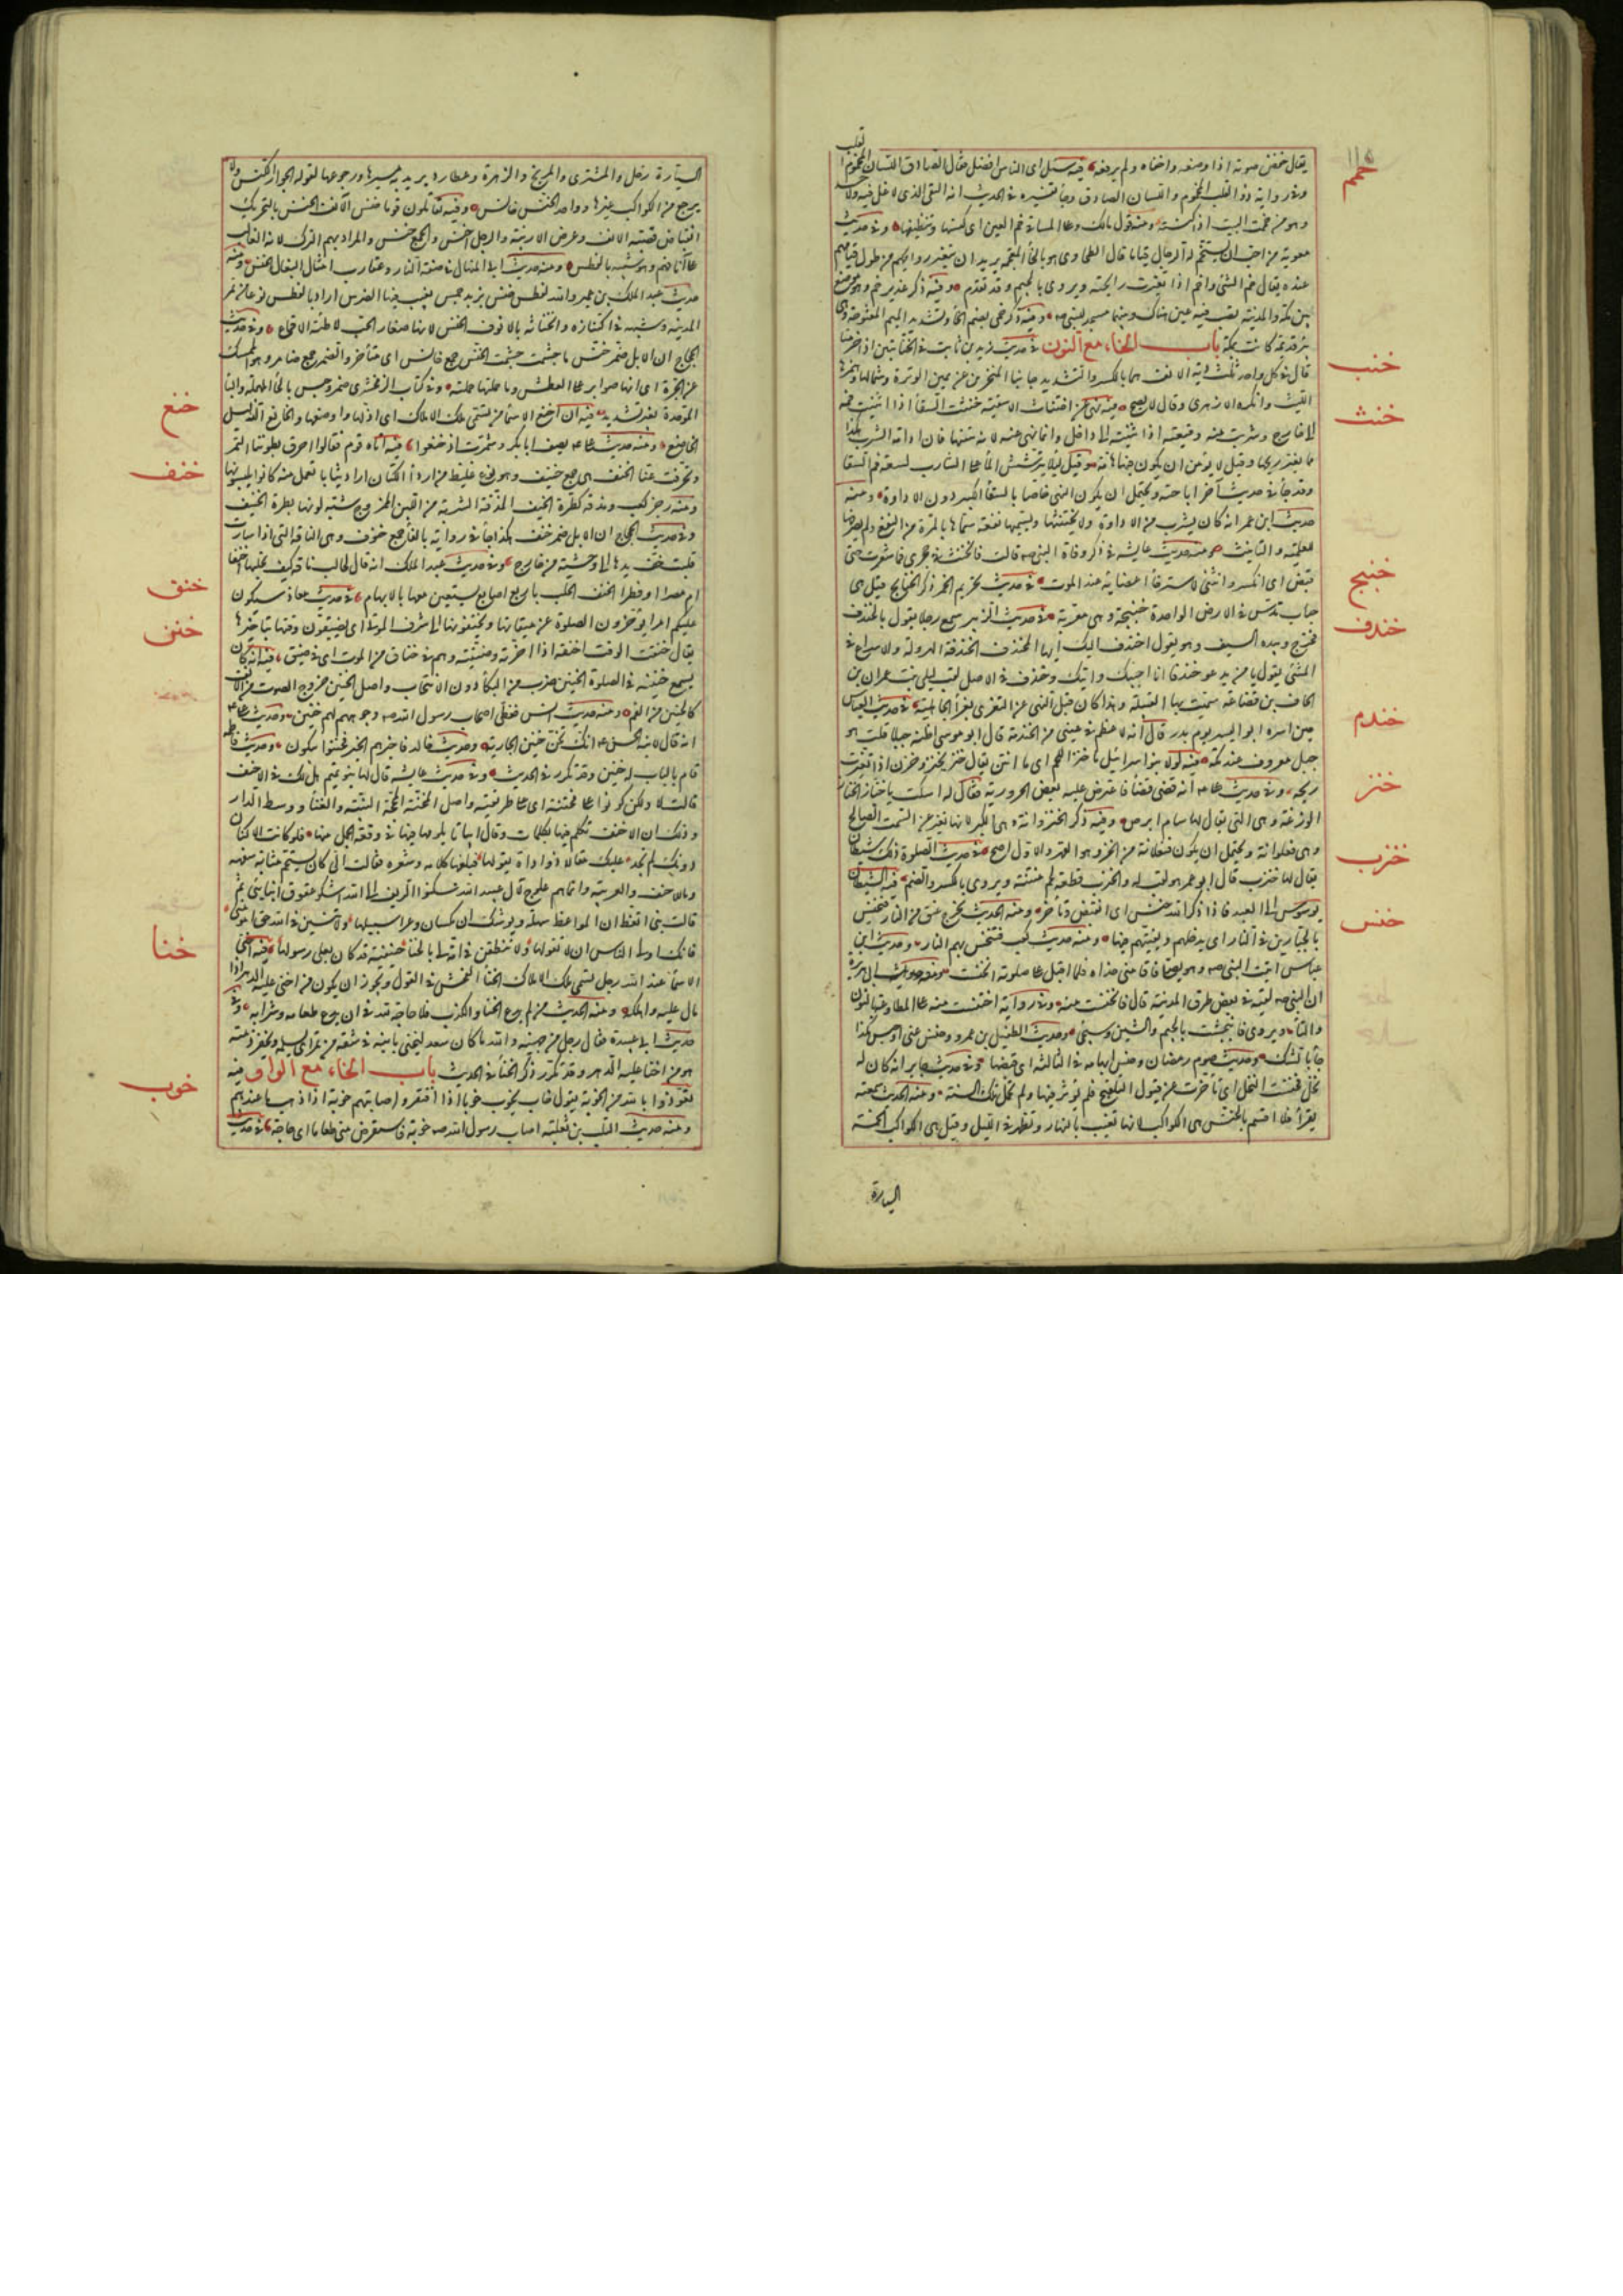 قلب
١١٥
خمم
يقال خفض صوته اذا وضعه واخفاه ولم يرفعه فيه سئل اى الناس افضل فقال الصادق اللسان المخموم
وفى رواية ذو القلب المخموم واللسان الصادق وجاء تفسيره فى الحديث انه التقى الذى لا غل فيه ولا حسد
وهو من خممت البيت اذا كنسته ومنه قول مالك وعلى المساقى خم العين اى كنسها وتنظيفها وفى حديث
معوية من احب ان يستخم له الرجال قياما قال الطحاوى هو بالخاء المعجمة يريد ان يتغير روايحهم من طول قيامهم
عنده يقال خم الشئ واخم اذا تغيرت رايحته ويروى بالجيم وقد تقدم وفيه ذكر غدير خم وهو موضع
بين مكة والمدينة تصب فيه عين هناك وبينهما مسجد للنبى صم وفيه ذكر خمى بضم الخاء وتشديد الميم المفتوحة وهى
بئر قديمة كانت بمكة باب الخاء مع النون فى حديث زيد بن ثابت فى الخنابتين اذا خرمتا
خنب
قال فى كل واحد ثلث دية الانف هما بالكسر والتشديد جانبا المنخرين عن يمين الوترة وشمالها وهمزها
الليث وانكره الازهرى وقال لا يصح فيه نهى عن اختناث الاسقية خنثت السقاء اذا اثنيت فمه
خنث
الى خارج وشربت منه وقبعته اذا ثنيته الى داخل وانما نهى عنه لانه ينتنها فان ادامة الشرب هكذا
مما يغير ريحها وقيل لا يؤمن ان يكون فيها هامة وقيل لئلا يترشش الماء على الشارب لسعة فم السقاء
وقد جاء فى حديث آخر اباحته ويحتمل ان يكون النهى خاصا بالسقاء الكبير دون الاداوة ومنه
حديث ابن عمر انه كان يشرب من الاداوة ولا يختنثها ويسميها نفعة سماها بالمرة من النفع ولم يصرفها
للعلمية والتانيث ومنه حديث عايشة فى ذكر وفاة النبى صم قالت فانخنث فى حجرى فما شعرت حتى
قبض اى انكسر وانثنى لاسترخاء اعضايه عند الموت فى حديث تحريم الخمر ذكر الخنابج قيل هى
خنبج
حباب تدس فى الارض الواحدة خنبجة وهى معربة فى حديث الزبير سمع رجلا يقول يالخندف
خندف
فخرج وبيده السيف وهو يقول اخندف اليك ايها المخندف الخندفة الهرولة والاسراع فى
المشى يقول يا من يدعو خندفا انا اجيبك واتيك وخندف فى الاصل لقب ليلى بنت عمران بن
الحاف بن قضاعة سميت بها القبيلة وهذا كان قبل النهى عن التعزى بعزاء الجاهلية فى حديث العباس
خندم
حين اسره ابو اليسر يوم بدر قال انه لاعظم فى عينى من الخندمة قال ابو موسى اظنه جبلا قلت هو
جبل معروف عند مكة فيه لولا بنو اسرائيل ما خنز اللحم اى ما انتن يقال خنز يخنز وخزن اذا تغيرت
خنز
ريحه وفى حديث على انه قضى قضاء فاعترض عليه بعض الحرورية فقال له اسكت يا خناز الخناز
الوزغة وهى التى يقال لها سام ابرص وفيه ذكر الخنزوانة وهى الكبر لانها تغير عن السمت الصالح
وهى فعلوانة ويحتمل ان يكون فنعلانة من الخزو وهو القهر والاول اصح فى حديث الصلوة ذلك شيطان
خنزب
يقال له خنزب قال ابو عمر هو لقب له والخنزب قطعة لحم منتنة ويروى بالكسر والضم فيه الشيطان
يوسوس الى العبد فاذا ذكر الله خنس اى انقبض وتأخر ومنه الحديث يخرج عنق من النار فتخنس
خنس
بالجبارين فى النار اى يدخلهم ويغيبهم فيها ومنه حديث كعب فتخنس بهم النار وحديث ابن
عباس اتيت النبى صم وهو يصلى فاقامنى حذاه فلما اقبل على صلوته انخنست ومنه حديث ابى هريرة
ان النبى صم لقيه فى بعض طرق المدينة قال فانخنست منه وفى رواية اختنست منه على المطاوعة بالنون
والتاء ويروى فانبجشت بالجيم والشين وسيجئ وحديث الطفيل بن عمرو وخنس عنى او حبس هكذا
جاء بالشك وحديث صوم رمضان وخنس ابهامه فى الثالثة اى قبضها وفى حديث جابر انه كان له
نخل فخنست النخل اى تاخرت عن قبول التلقيح فلم يؤثر فيها ولم تحمل تلك السنة ومنه الحديث سمعته
يقرأ فلا اقسم بالخنس هى الكواكب لانها تغيب بالنهار وتظهر فى الليل وقيل هى الكواكب الخمسة
السيارة
السيارة زحل والمشترى والمريخ والزهرة وعطارد يريد به مسيرها ورجوعها لقوله الجوار الكنس ولا
يرجع من الكواكب غيرها وواحد الخنس خانس وفيه تقاتلون قوما خنس الآنف الخنس بالتحريك
انقباض قصبة الانف وعرض الارنبة والرجل اخنس والجمع خنس والمراد بهم الترك لانه الغالب
على آنافهم وهو شبيه بالفطس ومنه حديث ابى المنهال فى صفة النار وعقارب امثال البغال الخنس ومنه
حديث عبد الملك بن عمير والله لفطس خنس بزبد جمس يغيب فيها الضرس اراد بالفطس نوعا من تمر
المدينة وشبهه فى اكتنازه وانحنائه بالانوف الخنس لانها صغار الحب لاطئة الاقماع وفى حديث
الحجاج ان الابل ضمز خنس ما جشمت جشمت الخنس جمع خانس اى متأخر والضمز جمع ضامز وهو الممسك
عن الجرة اى انها صوابر على العطش وما حملتها حملته وفى كتاب الزمخشرى ضمر وحبس بالحاء المهملة والباء
الموحدة بغير تشديد فيه ان اخنع الاسماء من تسمى ملك الاملاك اى اذلها واوضعها والخانع الذليل
خنع
الخاضع ومنه حديث على يصف ابا بكر وشمرت اذ خنعوا فيه اتاه قوم فقالوا احرق بطوننا التمر
وتخرقت عنا الخنف هى جمع خنيف وهو نوع غليظ من اردأ الكتان اراد ثيابا تعمل منه كانوا يلبسونها
خنف
ومنه رجز كعب ومذقة كطرة الخنيف المذقة الشربة من اللبن الممزوج شبه لونها بطرة الخنيف
وفى حديث الحجاج ان الابل ضمز خنف هكذا جاء فى رواية بالفاء جمع خنوف وهى الناقة التى اذا سارت
قلبت خف يدها الى وحشيه من خارج وفى حديث عبد الملك انه قال لحالب ناقة كيف تحلبها أخنفا
ام مصرا ام فطرا الخنف الحلب باربع اصابع يستعين معها بالابهام فى حديث معاذ سيكون
خنق
عليكم امراء يؤخرون الصلوة عن ميقاتها ويخنقونها الى شرق الموتى اى يضيقون وقتها بتاخيرها
يقال خنقت الوقت اخنقه اذا اخرته وضيقته وهم فى خناق من الموت اى فى ضيق فيه انه كان
خنن
يسمع خنينه فى الصلوة الخنين ضرب من البكاء دون الانتحاب واصل الخنين خروج الصوت من الانف
كالحنين من الفم ومنه حديث انس فغطى اصحاب رسول الله صم وجوههم لهم خنين وحديث على
انه قال لابنه الحسن انك تخن خنين الجارية وحديث خالد فاخبرهم الخبر فخنوا يبكون وحديث فاطمة
قام بالباب له خنين وقد تكرر فى الحديث وفى حديث عايشة قال لها بنو تميم هل لك فى الاحنف
قالت لا ولكن كونوا على مخنته اى على طريقته واصل المخنة المحجة البينة والفناء ووسط الدار
وذلك ان الاحنف تكلم فيها بكلمات وقال ابياتا يلومها فيها فى وقعة الجمل منها فلو كانت الاكنان
دونك لم تجد عليك مقالا ذو اداة يقولها فبلغها كلامه وشعره فقالت الى كان يستجم مثابة سفهه
وما للاحنف والعربية وانما هم علوج لآل عبيد الله سكنوا الريف الى الله اشكو عقوق ابنائى ثم
قالت بنى اتعظ ان المواعظ سهلة ويوشك ان تكتان وعرا سبيلها ولا تنسين فى الله حق امومتى
فانك اولى الناس ان لا تقولها ولا تنطقن فى امة لى بالخنا حنيفية قد كان بعلى رسولها فيه اخنى
خنا
الاسماء عند الله رجل تسمى ملك الاملاك الخنا الفحش فى القول ويجوز ان يكون من اخنى عليه الدهر اذا
مال عليه واهلكه ومنه الحديث من لم يدع الخنا والكذب فلا حاجة لله فى ان يدع طعامه وشرابه وفى
حديث ابى عبيدة فقال رجل من جهينة والله ما كان سعد ليخنى بابنه فى شقة من تمر اى يسلمه ويخفر ذمته
هو من اخنى عليه الدهر وقد تكرر ذكر الخنا فى الحديث باب الخاء مع الواو فيه
خوب
نعوذ بالله من الخوبة يقول خاب يخوب خوبا اذا افتقر واصابتهم خوبة اذا ذهب ما عندهم
ومنه حديث التلب بن ثعلبة اصاب رسول الله صم خوبة فاستقرض منى طعاما اى حاجة فى حديث